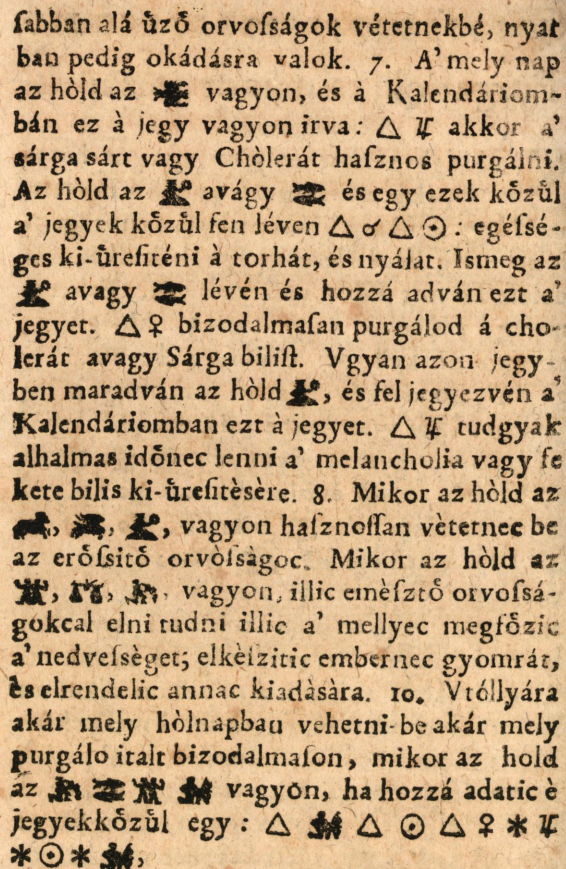 ſabban alá űző orvoſságok vétetnekbé, nyat
ban pedig okádásra valok. 7. A’ mely nap
az hòld az vagyon, és à Kalendáriom-
bán ez à jegy vagyon irva: △ ♃ akkor a’
sárga sárt vagy Chòlerát haſznos purgálni.
Az hòld az avágy és egy ezek kőzűl
a’ jegyek kőzűl fen léven △ ♂ △ ☉ : egéſsé-
ges ki-ûreſiténi à torhát, és nyálat. Ismeg az
avagy lévén és hozzá adván ezt a’
jegyet. △ ♀ bizodalmaſan purgálod á cho-
lerát avagy Sárga biliſt. Vgyan azon jegy-
ben maradván az hòld , és fel jegyezvén a’
Kalendáriomban ezt à jegyet. △ ♃ tudgyak
alhalmas időnec lenni a’ melancholia vagy fe
kete bilis ki-ûreſitèsère. 8. Mikor az hòld az
, , , vagyon haſznoſſan vètetnec be
az erőſsitő orvòſsàgoc. Mikor az hòld az
, , , vagyon, illic emèſztő orvoſsá-
gokcal elni tudni illic a’ mellyec megfőzic
a’ nedveſsèget; elkèſzitic embernec gyomrát,
ès elrendelic annac kiadàsàra. 10. Vtóllyára
akár mely hòlnapban vehetni-be akár mely
purgálo italt bizodalmaſon, mikor az hold
az vagyon, ha hozzá adatic è
jegyekkőzűl egy : △ △ ☉ △ ♀ * ♃
* ☉ * ,